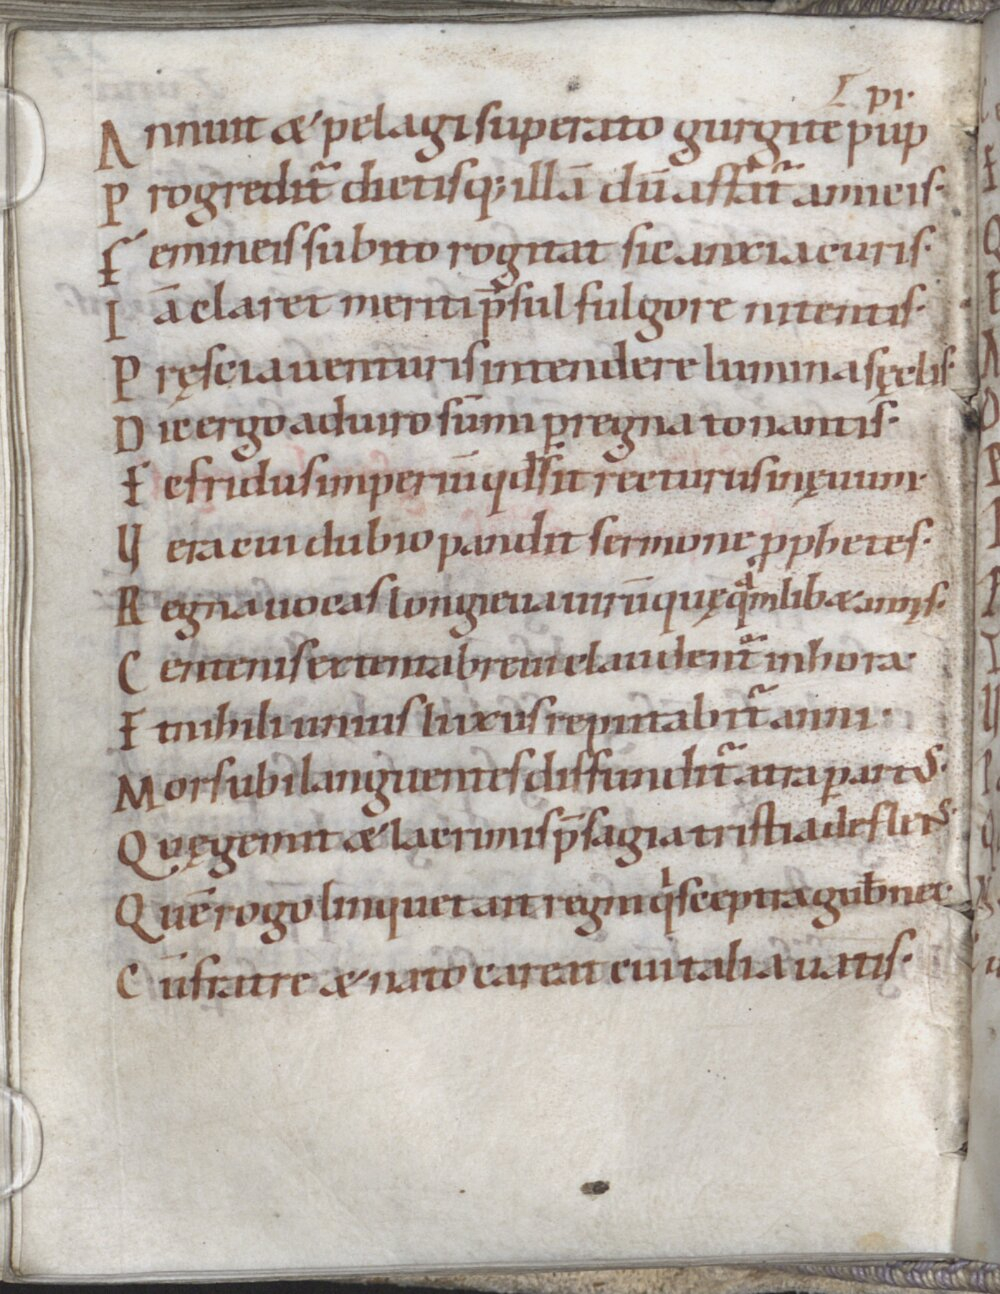 Annuit & pelagi superato gurgite pup
pı·
Progredit̄ dictisq; illā dū affat̄ amicis·
Femineis subito rogitat sic anxia curis·
Iā claret meriti p̄sul fulgore nitentis·
Pręscia uenturis intendere lumina sęclis·
Dic ergo adiuro sūmi ꝑ regna tonantis·
Ecfridus imperiū qd̄ sit recturus in ęuum·
Vera cui dubio pandit sermone ꝓphetes·
Regna uocas longieua uirū quę quālib& annis·
Centenis extenta breui claudent̄ in hora·
Et nihili unius luxus reputabit̄ anni·
Mors ubi languentes diffundit̄ atra ꝑ artus·
Quę gemit & lacrimis p̄sagia tristia fletus·
Quē rogo linquet ait regni qui sceptra gub̄net·
Cū fratre & nato careat cui talia uatis·